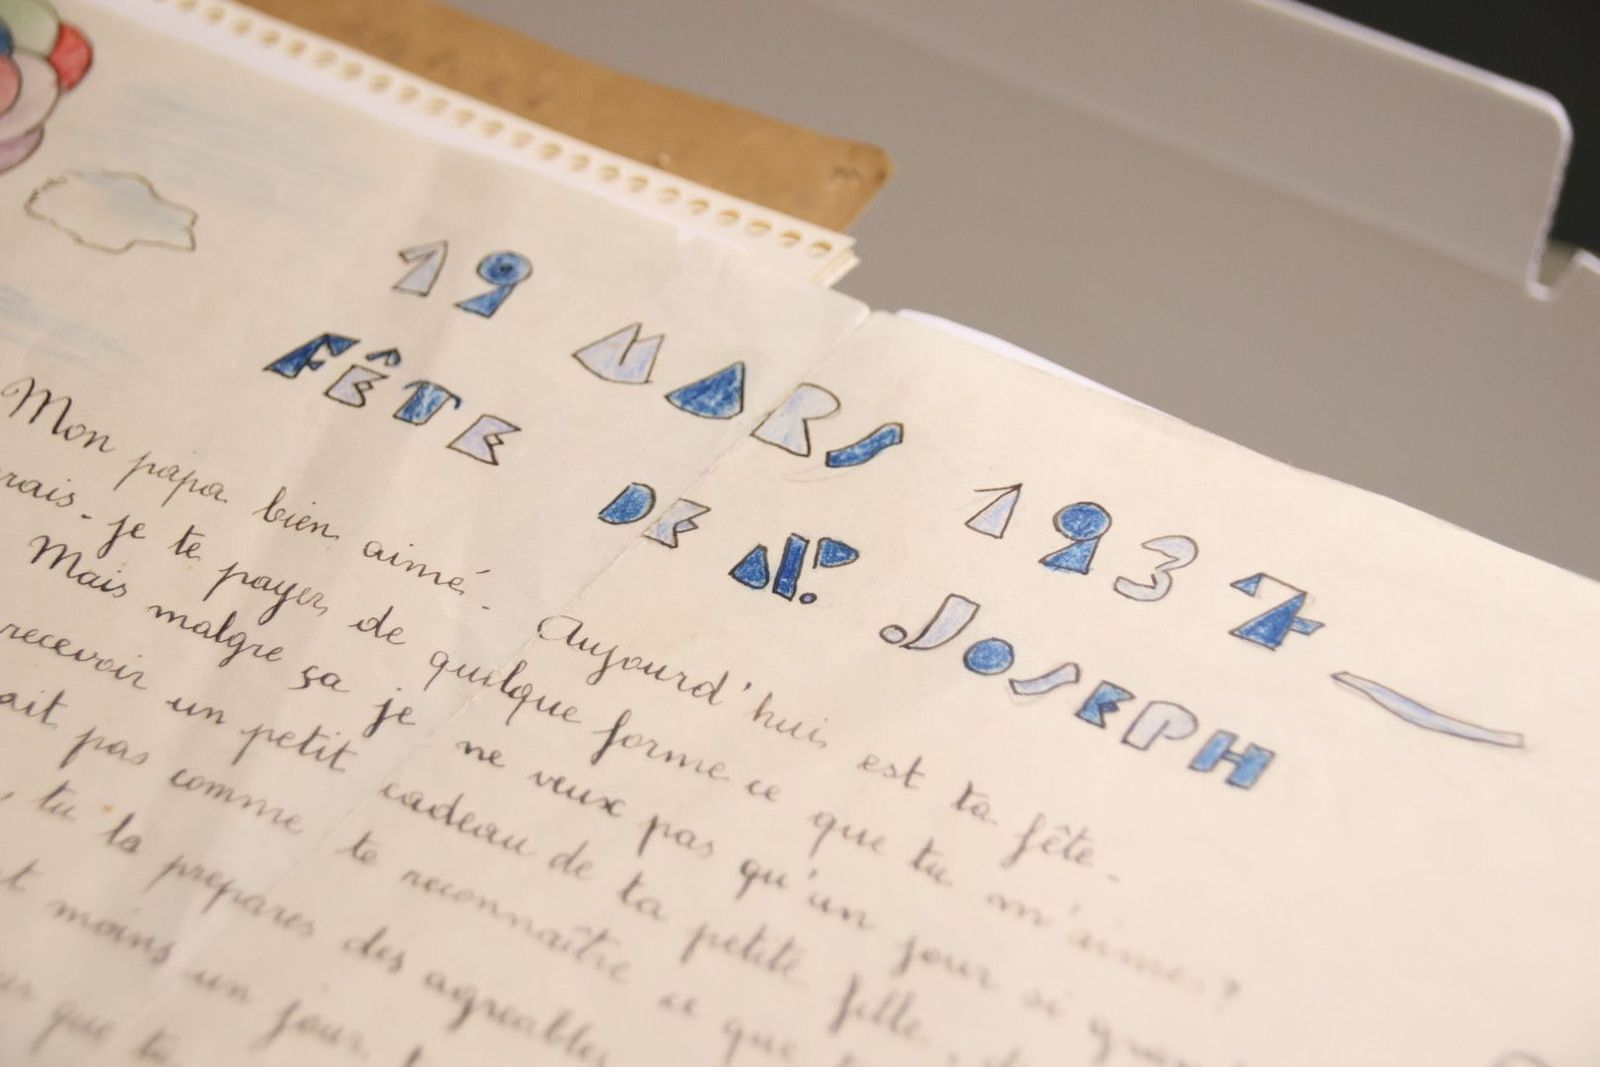 19 MARS 1937
FÊTE DE St JOSEPH
Mon papa bien aimé. Aujourd'hui est ta fête.
rais-je te payer, de quelque forme ce que tu m'aimes?
Mais malgre ça je ne veux pas qu'un jour si
recevoir un petit cadeau de ta petite fille
ait pas comme te reconnaître ce que
tu la prepares des agreables
moins un jour
que tu